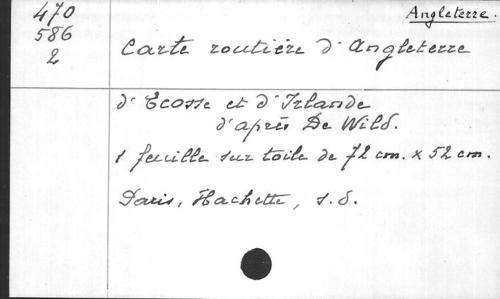 470
586
2
Angleterre.
Carte routière d'Angleterre
d'Ecosse et d'Irlande
d'après De Wild.
1 feuille sur toile de 72 cm. x 52 cm.
Paris, Hachette, s.d.